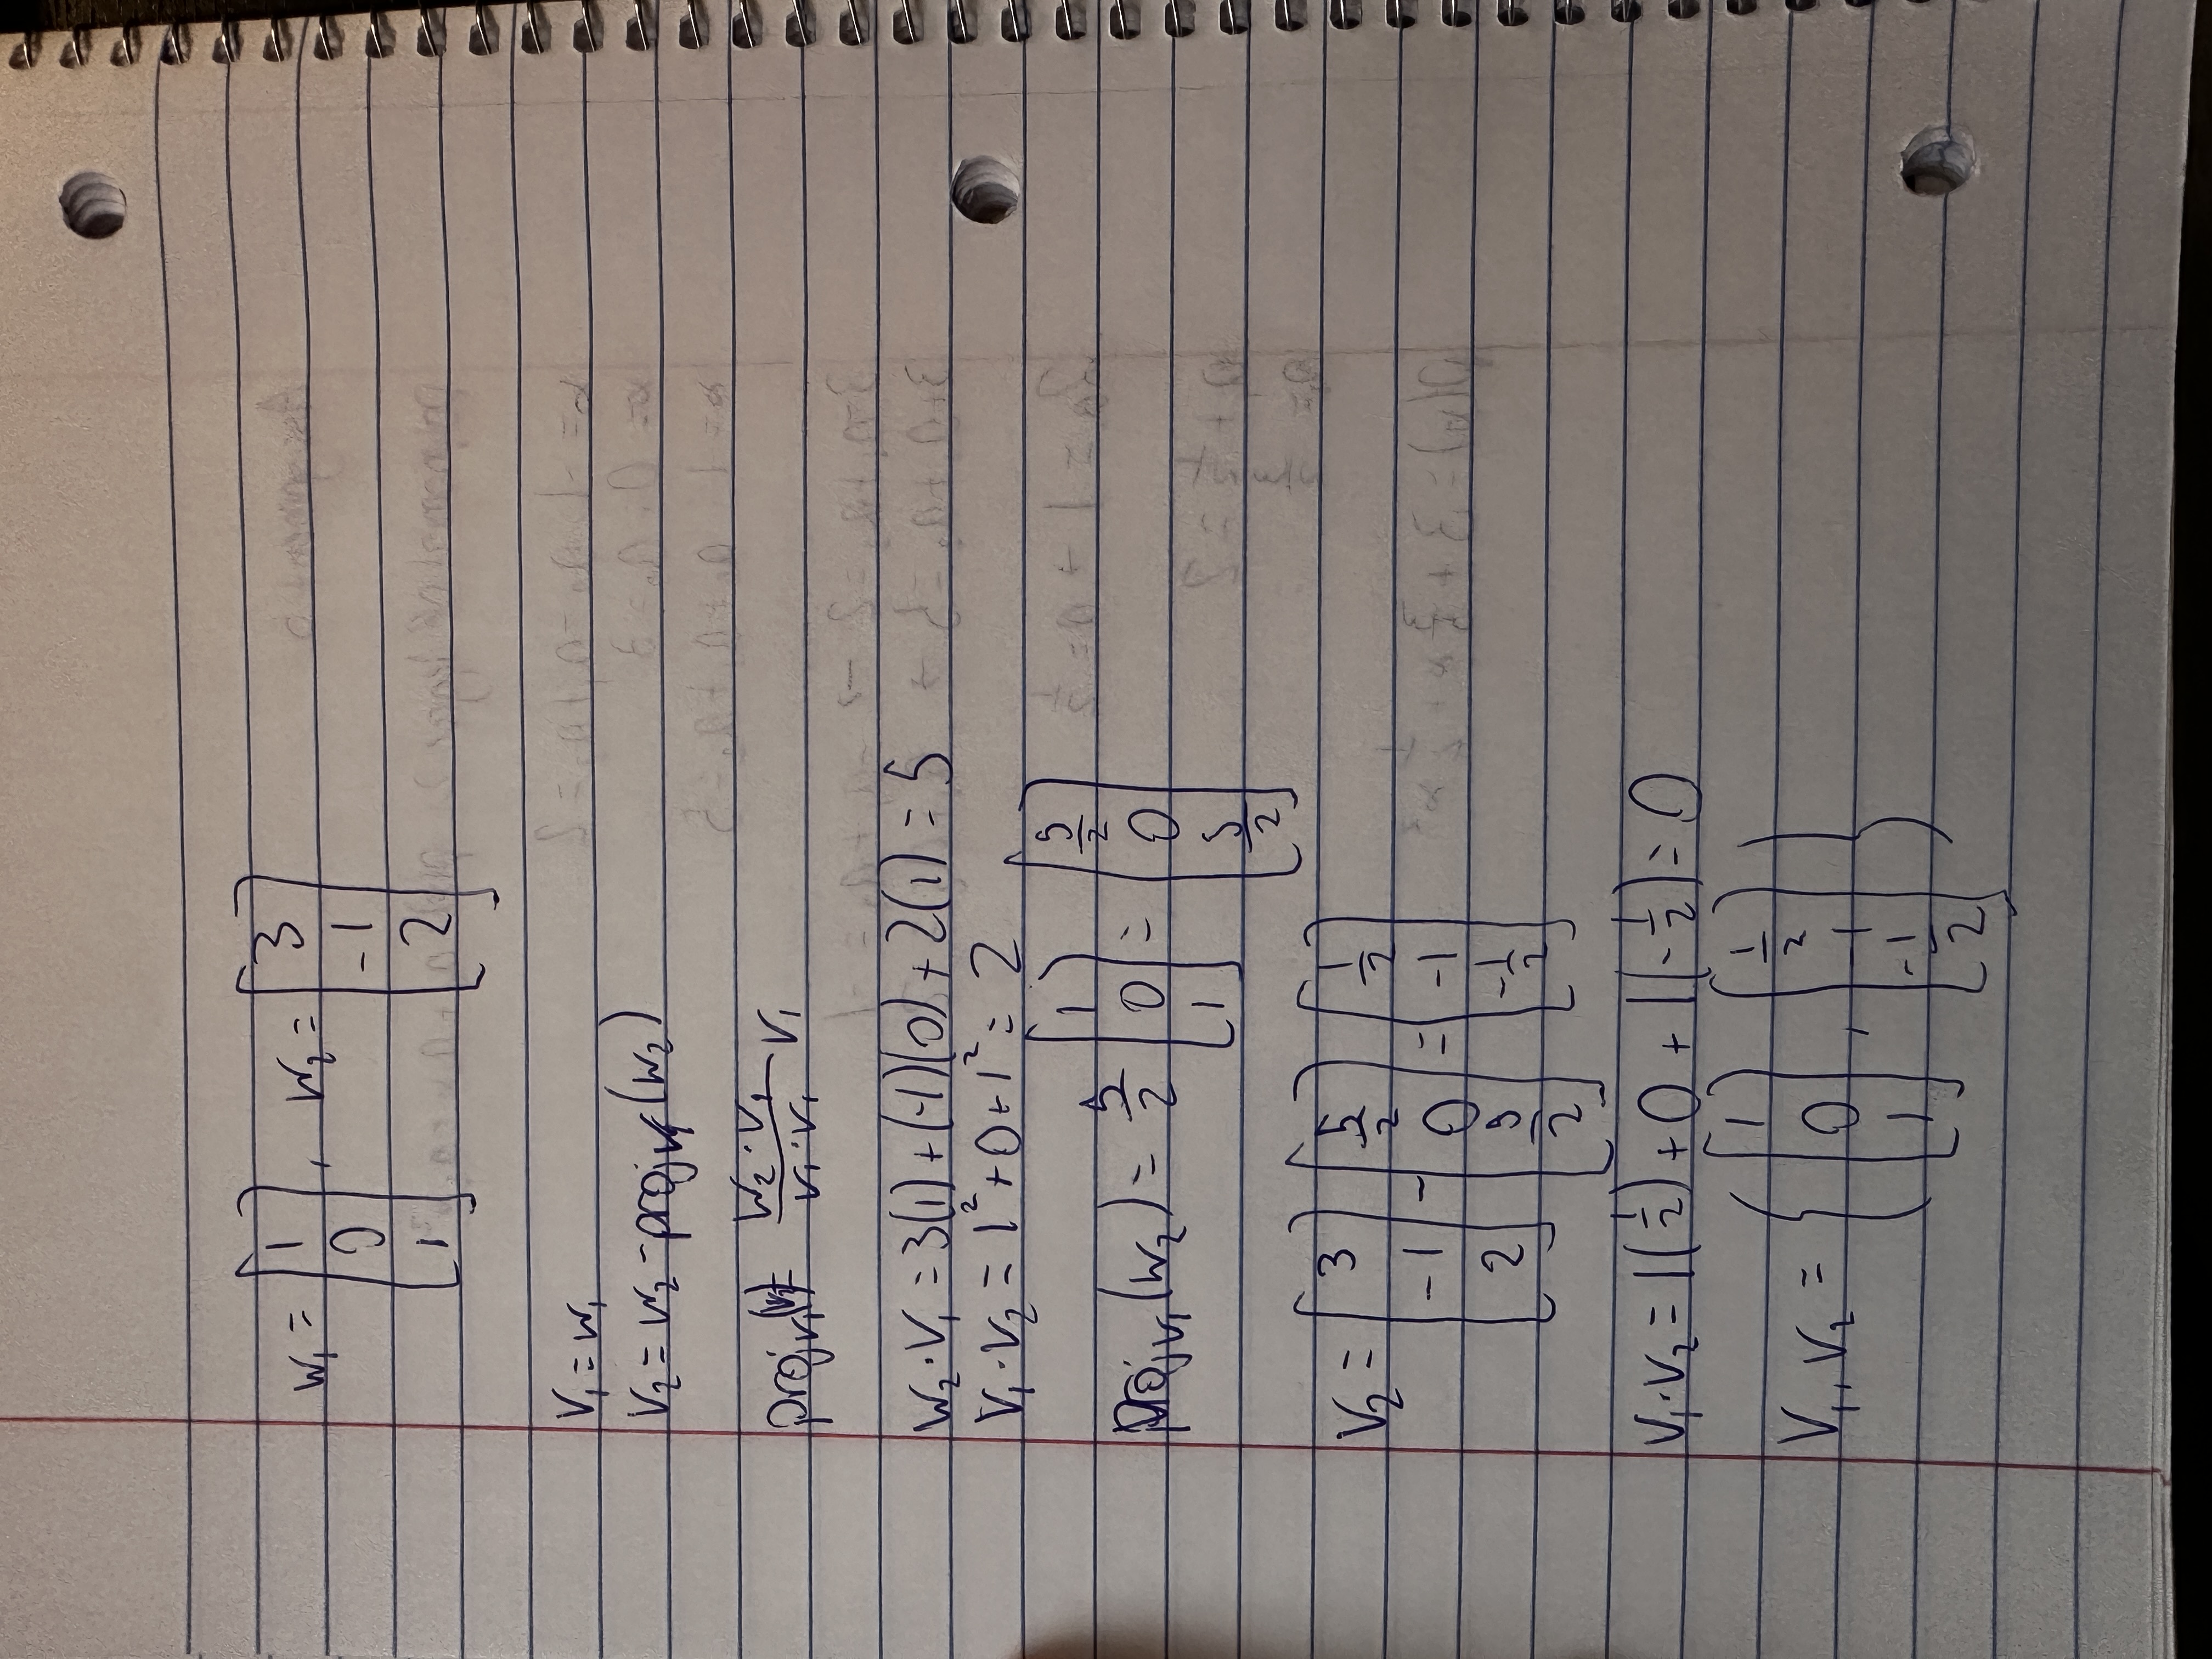 w₁ = [1 0 1], w₂ = [3 -1 2]
v₁ = w₁
v₂ = w₂ - proj_v₁(w₂)
proj_v₁(w₂) = (w₂·v₁)/(v₁·v₁) v₁
w₂·v₁ = 3(1) + (-1)(0) + 2(1) = 5
v₁·v₂ = 1² + 0 + 1² = 2
proj_v₁(w₂) = 5/2 [1 0 1] = [5/2 0 5/2]
v₂ = [3 -1 2] - [5/2 0 5/2] = [1/2 -1 -1/2]
v₁·v₂ = 1(1/2) + 0 + 1(-1/2) = 0
v₁, v₂ = {[1 0 1], [1/2 -1 -1/2]}